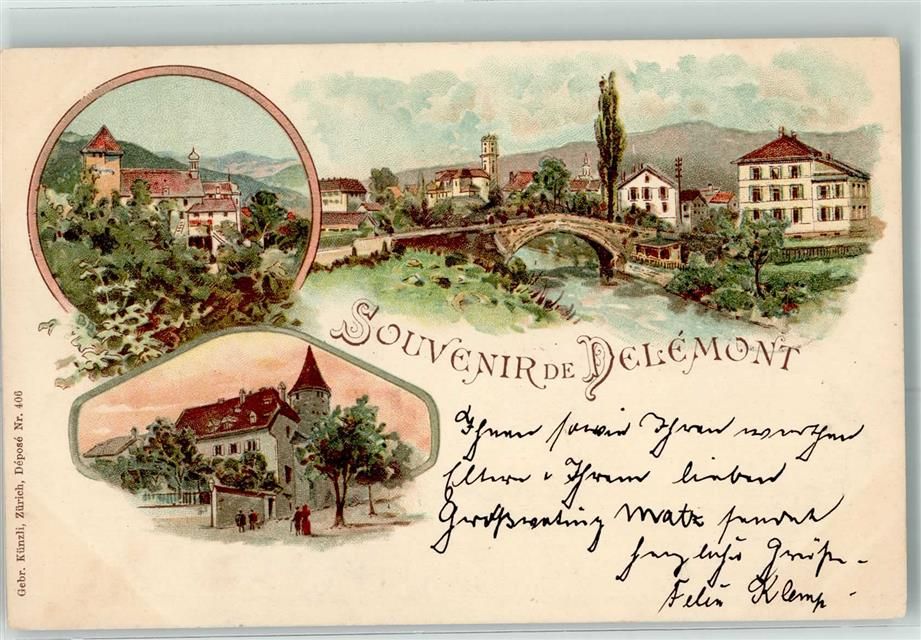 SOUVENIR DE DELÉMONT
Ihnen sowie Ihren werthen
Eltern u Ihrem lieben
Matz sendet
herzliche Grüße
Felix Klemp
Gebr. Künzli, Zürich, Déposé Nr. 406